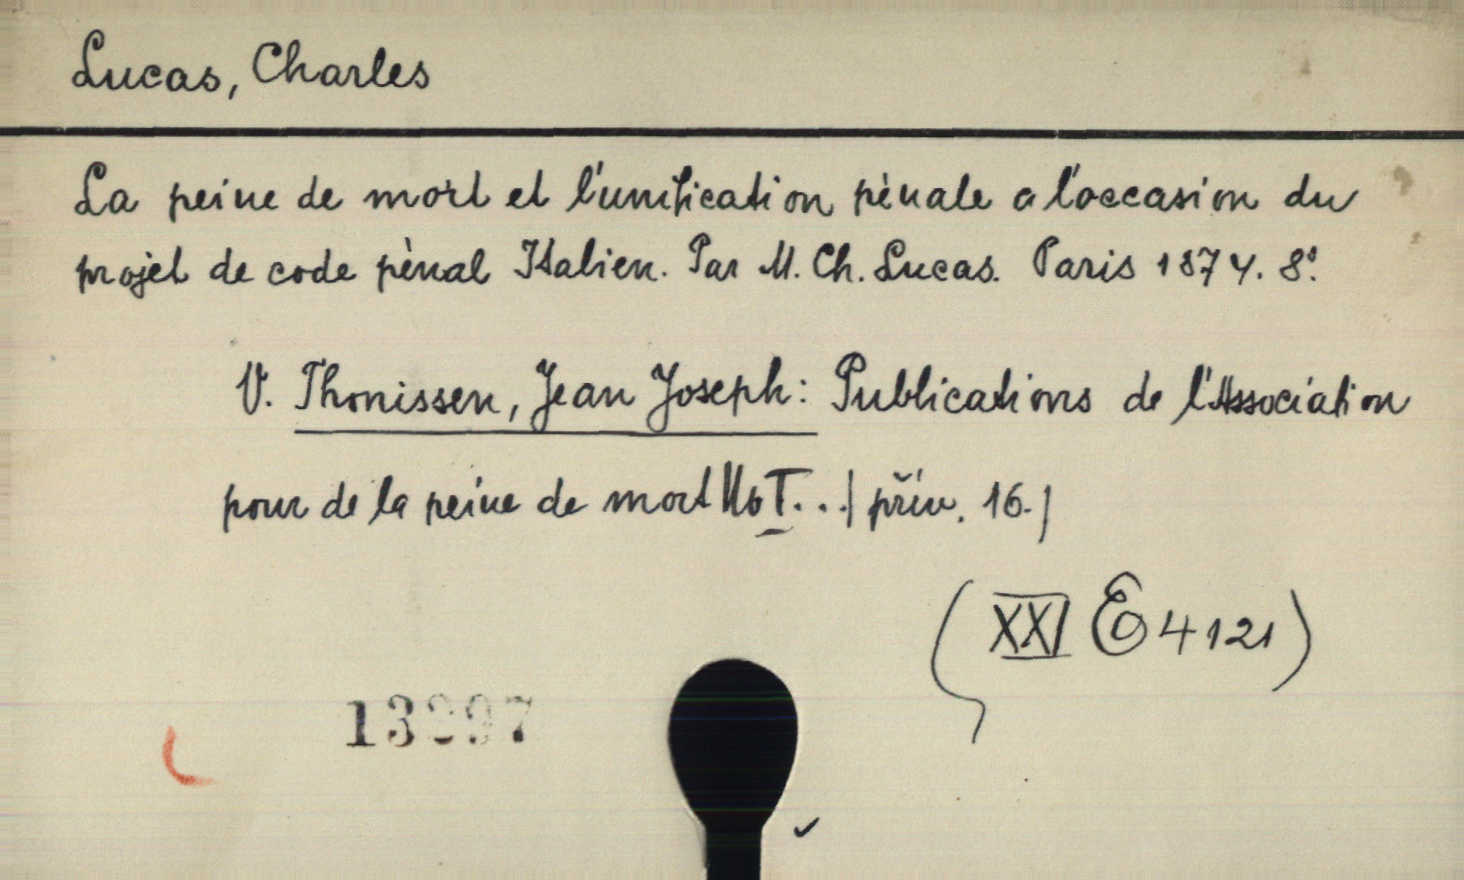 Lucas, Charles
La peine de mort et l'unification pènale a l'occasion du
projet de code pènal Italien. Par M. Ch. Lucas. Paris 1874. 8°.
V. Thonissen, Jean Joseph: Publications de l'Association
pour de la peine de mort No I... | přív. 16.|
(XXI E 4121)
13297